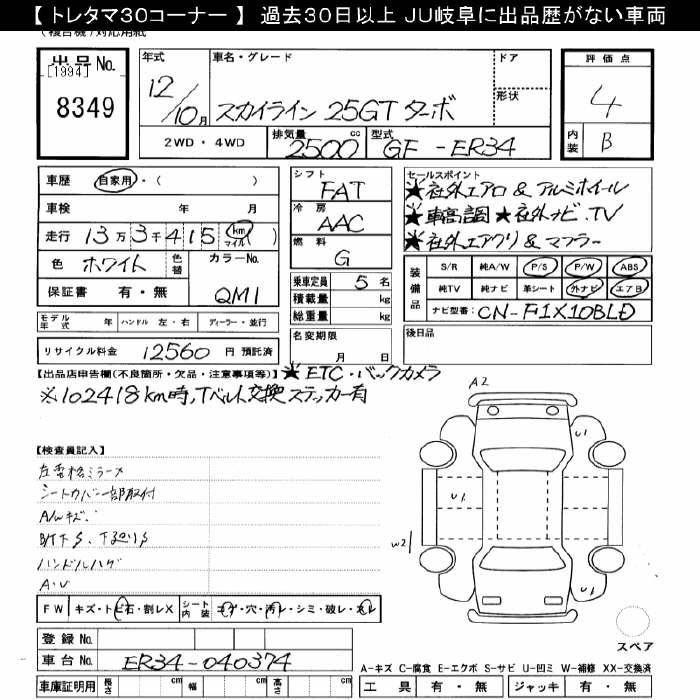 【 トレタマ30コーナー 】 過去30日以上 JU岐阜に出品歴がない車両
出品No.
[1994]
8349
年式 車名・グレード ドア
12/10月 スカイライン 25GT ターボ 形状
2WD ・ 4WD 排気量 2500 cc 型式 GF - ER34
評価点
4
内装 B
車歴 自家用・( )
車検 年 月
走行 13万3千415 (km マイル)
色 ホワイト 色替 カラーNo.
保証書 有・無 QM1
モデル年式 年 ハンドル 左・右 ディーラー・並行
リサイクル料金 12560 円 預託済
シフト
FAT
冷房
AAC
燃料
G
乗車定員 5 名
積載量 kg
総重量 kg
名変期限
月 日
セールスポイント
★社外エアロ & アルミホイール
★車高調 ★社外ナビ.TV
★社外エアクリ & マフラー
装備品 S/R 純A/W P/S P/W ABS
純TV 純ナビ 革シート 外ナビ エアB
ナビ型番: CN-F1X10BLD
後日品
【出品店申告欄(不良箇所・欠品・注意事項等)】 ★ETC・バックカメラ
※102418km時,Tベルト交換ステッカー有
【検査員記入】
シートカバー一部取付
A/Wキズ.
ハンドルハゲ
FW キズ・トビ石・割レX シート内装 コゲ・穴・汚レ・シミ・破レ・スレ
登録No.
車台No. ER34-040374
車庫証明用 長さ cm 幅 cm 高さ cm
A2
U1
U1
W2
U1
スペア
A-キズ C-腐食 E-エクボ S-サビ U-凹ミ W-補修 XX-交換済
工具 有・無 ジャッキ 有・無